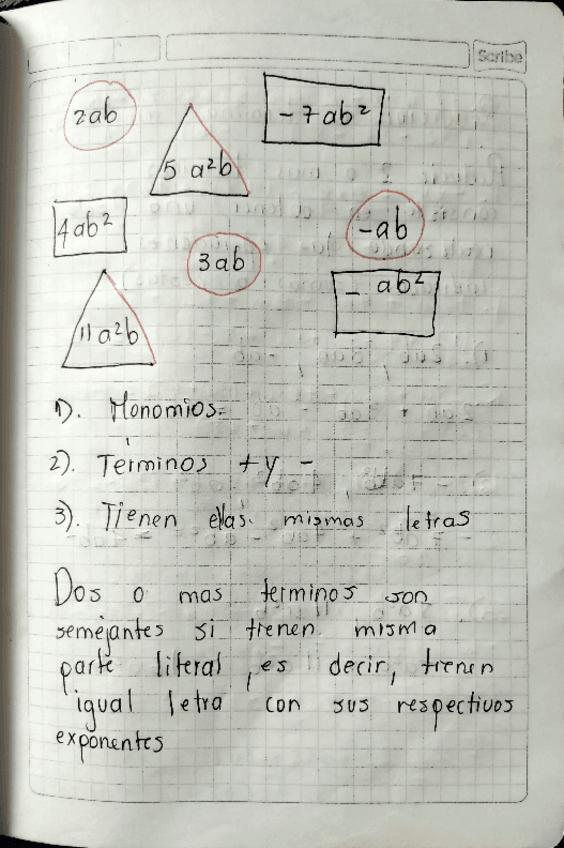 Scribe
2ab
5 a²b
-7ab²
4ab²
3ab
-ab
- ab²
11a²b
1). Monomios
2). Terminos + y -
3). Tienen ellas mismas letras
Dos o mas terminos son
semejantes si tienen misma
parte literal, es decir, tienen
igual letra con sus respectivos
exponentes